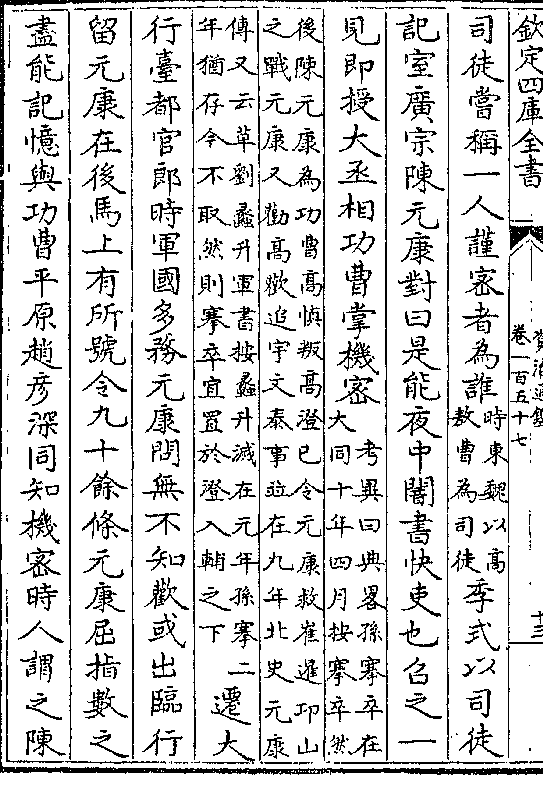 欽定四庫全書
資治通鑑
卷一百五十七
十三
司徒嘗稱一人謹密者為誰時東魏以高
敖曹為司徒季式以司徒
記室廣宗陳元康對曰是能夜中闇書快吏也召之一
見即授大丞相功曹掌機密考異曰典畧孫搴卒在
大同十年四月按搴卒然
後陳元康為功曹高慎叛高澄已令元康救崔暹邙山
之戰元康又勸高歡追宇文泰事並在九年北史元康
傳又云草劉蠡升軍書按蠡升滅在元年孫搴二
年猶存今不取然則搴卒宜置於澄入輔之下遷大
行臺都官郎時軍國多務元康問無不知歡或出臨行
留元康在後馬上有所號令九十餘條元康屈指數之
盡能記憶與功曹平原趙彦深同知機密時人謂之陳